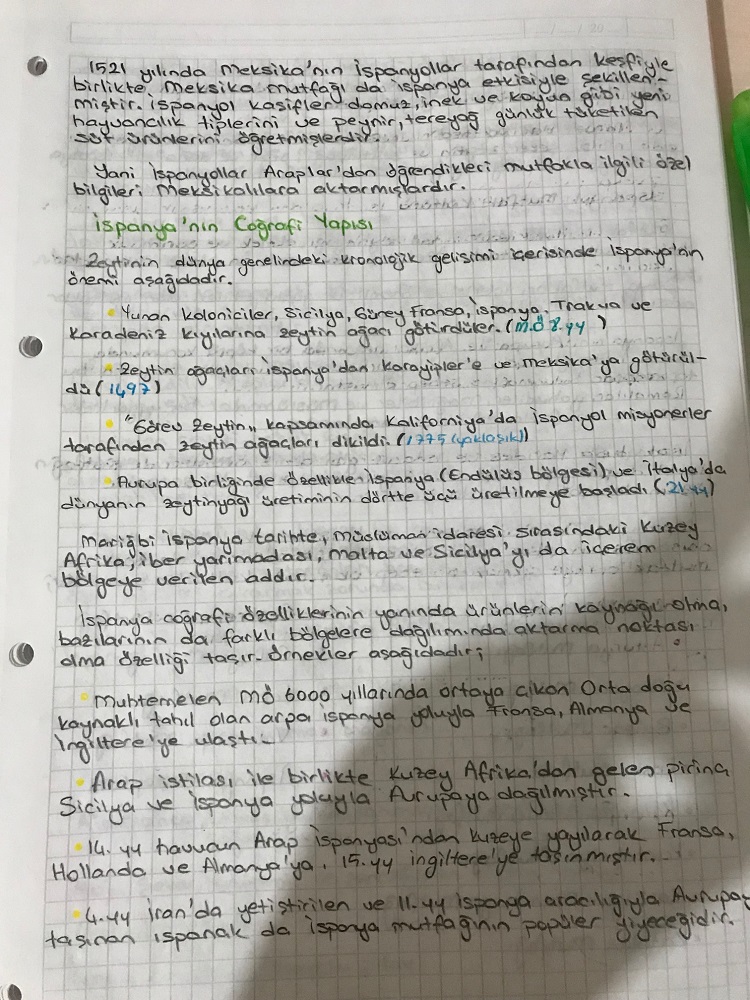 1521 yılında Meksika'nın İspanyollar tarafından keşfiyle
birlikte, Meksika mutfağı da İspanya etkisiyle şekillen-
miştir. İspanyol kaşifler domuz, inek ve koyun gibi yeni
hayvancılık tiplerini ve peynir, tereyağ günlük tüketilen
süt ürünlerini öğretmişlerdir.
Yani İspanyollar Araplar'dan öğrendikleri mutfakla ilgili özel
bilgileri Meksikalılara aktarmışlardır.
İspanya'nın Coğrafi Yapısı
Zeytinin dünya genelindeki kronolojik gelişimi içerisinde İspanya'nın
önemi aşağıdadır.
• Yunan koloniciler, Sicilya, Güney Fransa, İspanya, Trakya ve
Karadeniz kıyılarına zeytin ağacı götürdüler. (M.Ö 8.yy )
• Zeytin ağaçları İspanya'dan Karayipler'e ve Meksika'ya götürül-
dü (1497)
• "Görev Zeytin" kapsamında Kaliforniya'da İspanyol misyonerler
tarafından zeytin ağaçları dikildi. (1775 (yaklaşık))
• Avrupa birliğinde özellikle İspanya (Endülüs bölgesi) ve İtalya'da
dünyanın zeytinyağı üretiminin dörtte üçü üretilmeye başladı (21.yy)
Mariğbi İspanya tarihte, müslüman idaresi sırasındaki Kuzey
Afrika, iber yarımadası, malta ve Sicilya'yı da içerem
bölgeye verilen addır.
İspanya coğrafi özelliklerinin yanında ürünlerin kaynağı olma,
bazılarının da farklı bölgelere dağılımında aktarma noktası
olma özelliği taşır. Örnekler aşağıdadır;
• Muhtemelen MÖ 6000 yıllarında ortaya çıkan Orta doğu
kaynaklı tahıl olan arpa İspanya yoluyla Fransa, Almanya ve
İngiltere'ye ulaştı.
• Arap istilası ile birlikte Kuzey Afrika'dan gelen pirinç
Sicilya ve İspanya yoluyla Avrupaya dağılmıştır.
• 14. yy havucun Arap İspanyası'ndan kuzeye yayılarak Fransa,
Hollanda ve Almanya'ya, 15.yy ingiltere'ye taşınmıştır.
• 4.yy İran'da yetiştirilen ve 11.yy İspanya aracılığıyla Avrupay
taşınan ıspanak da İspanya mutfağının popüler yiyeceğidir.